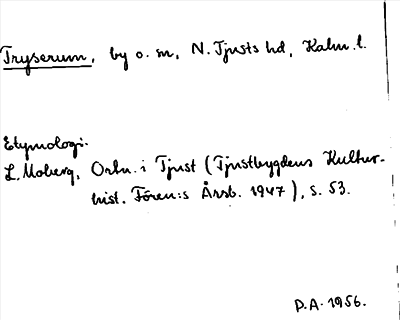 Tryserum, by o. sn, N. Tjusts hd, Kalm. l.
Etymologi.
L. Moberg, Ortn. i Tjust (Tjustbygdens Kultur-
hist. Fören:s Årsb. 1947), s. 53.
P.A. 1956.